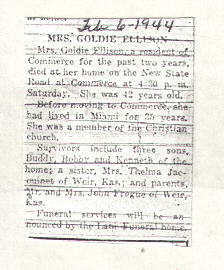 Feb 6-1944
MRS. GOLDIE ELLISON
Mrs. Goldie Ellison, a resident of
Commerce for the past two years,
died at her home on the New State
Road at Commerce at 4:30 p. m.
Saturday. She was 42 years old.
Before moving to Commerce, she
had lived in Miami for 25 years.
She was a member of the Christian
church.
Survivors include three sons,
Buddy, Bobby and Kenneth of the
home; a sister, Mrs. Thelma Jac-
quinet of Weir, Kas.; and parents,
Mr. and Mrs. John Frogue of Weir,
Kas.
Funeral services will be an-
nounced by the Lane Funeral home.